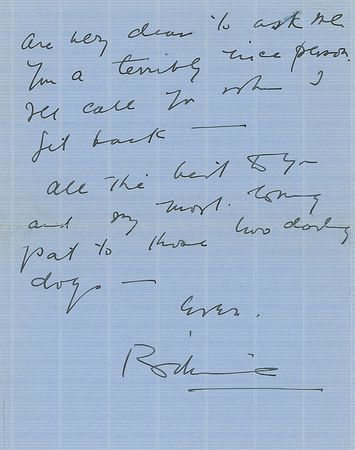 are very dear to ask me
You a terribly nice person.
Ill call you when I
get back —
all the best to you
and my most loving
pat to those two darling
dogs —
Ever.